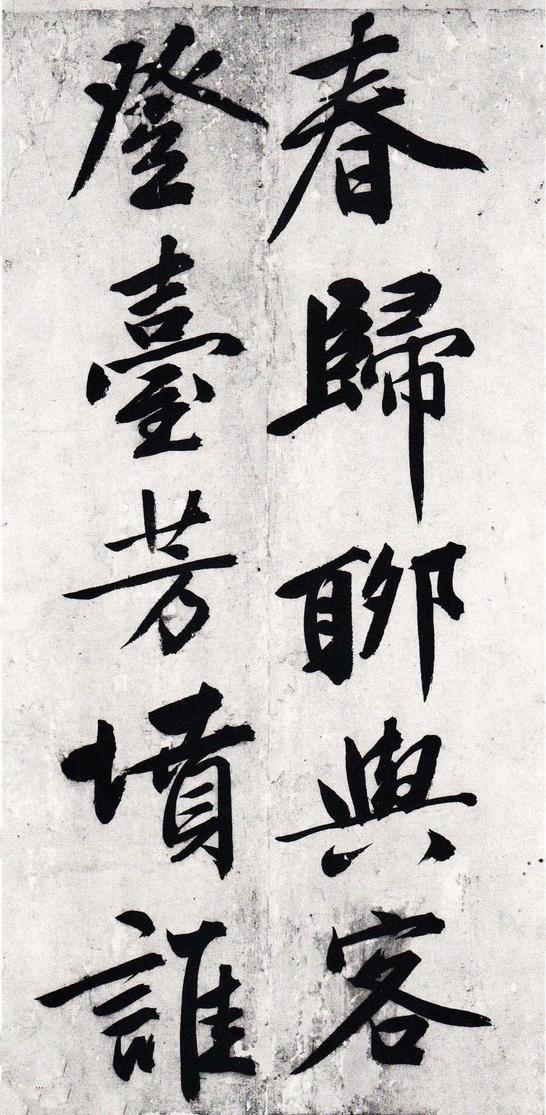 春歸聊與客
登臺芳墳誰